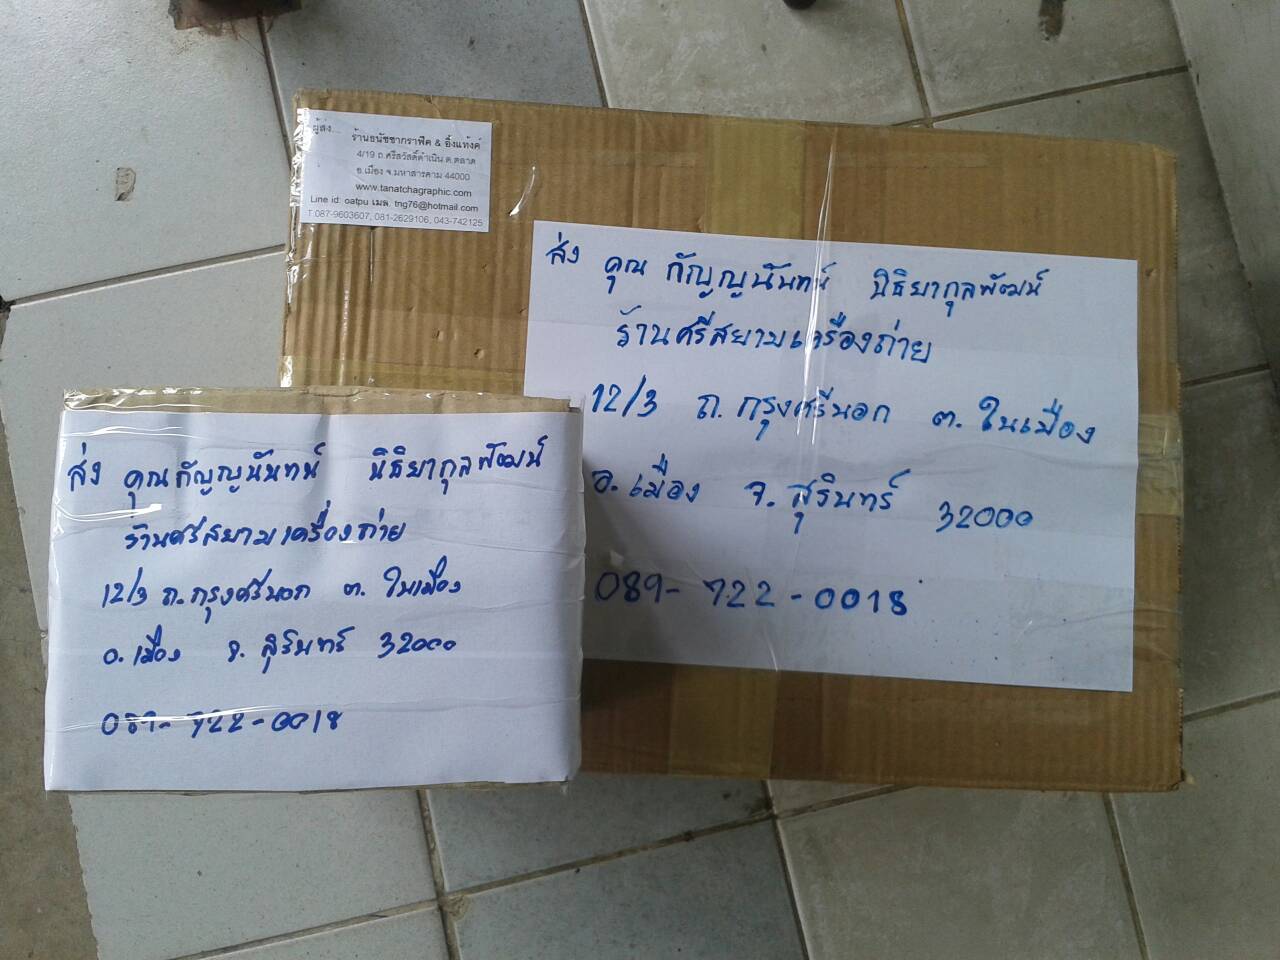 ผู้ส่ง...
ร้านธนัชชากราฟิค & อิ้งแท้งค์
4/19 ถ.ศรีสวัสดิ์ดำเนิน ต.ตลาด
อ.เมือง จ.มหาสารคาม 44000
www.tanatchagraphic.com
Line id: oatpu เมล. tng76@hotmail.com
T.087-9603607, 081-2629106, 043-742125
ส่ง คุณ กัญญนันทน์ นิธิยากุลพัฒน์
ร้านศรีสยามเครื่องถ่าย
12/3 ถ.กรุงศรีนอก ต.ในเมือง
อ.เมือง จ.สุรินทร์ 32000
089-722-0018
ส่ง คุณกัญญนันทน์ นิธิยากุลพัฒน์
ร้านศรีสยามเครื่องถ่าย
12/3 ถ.กรุงศรีนอก ต.ในเมือง
อ.เมือง จ.สุรินทร์ 32000
089-722-0018